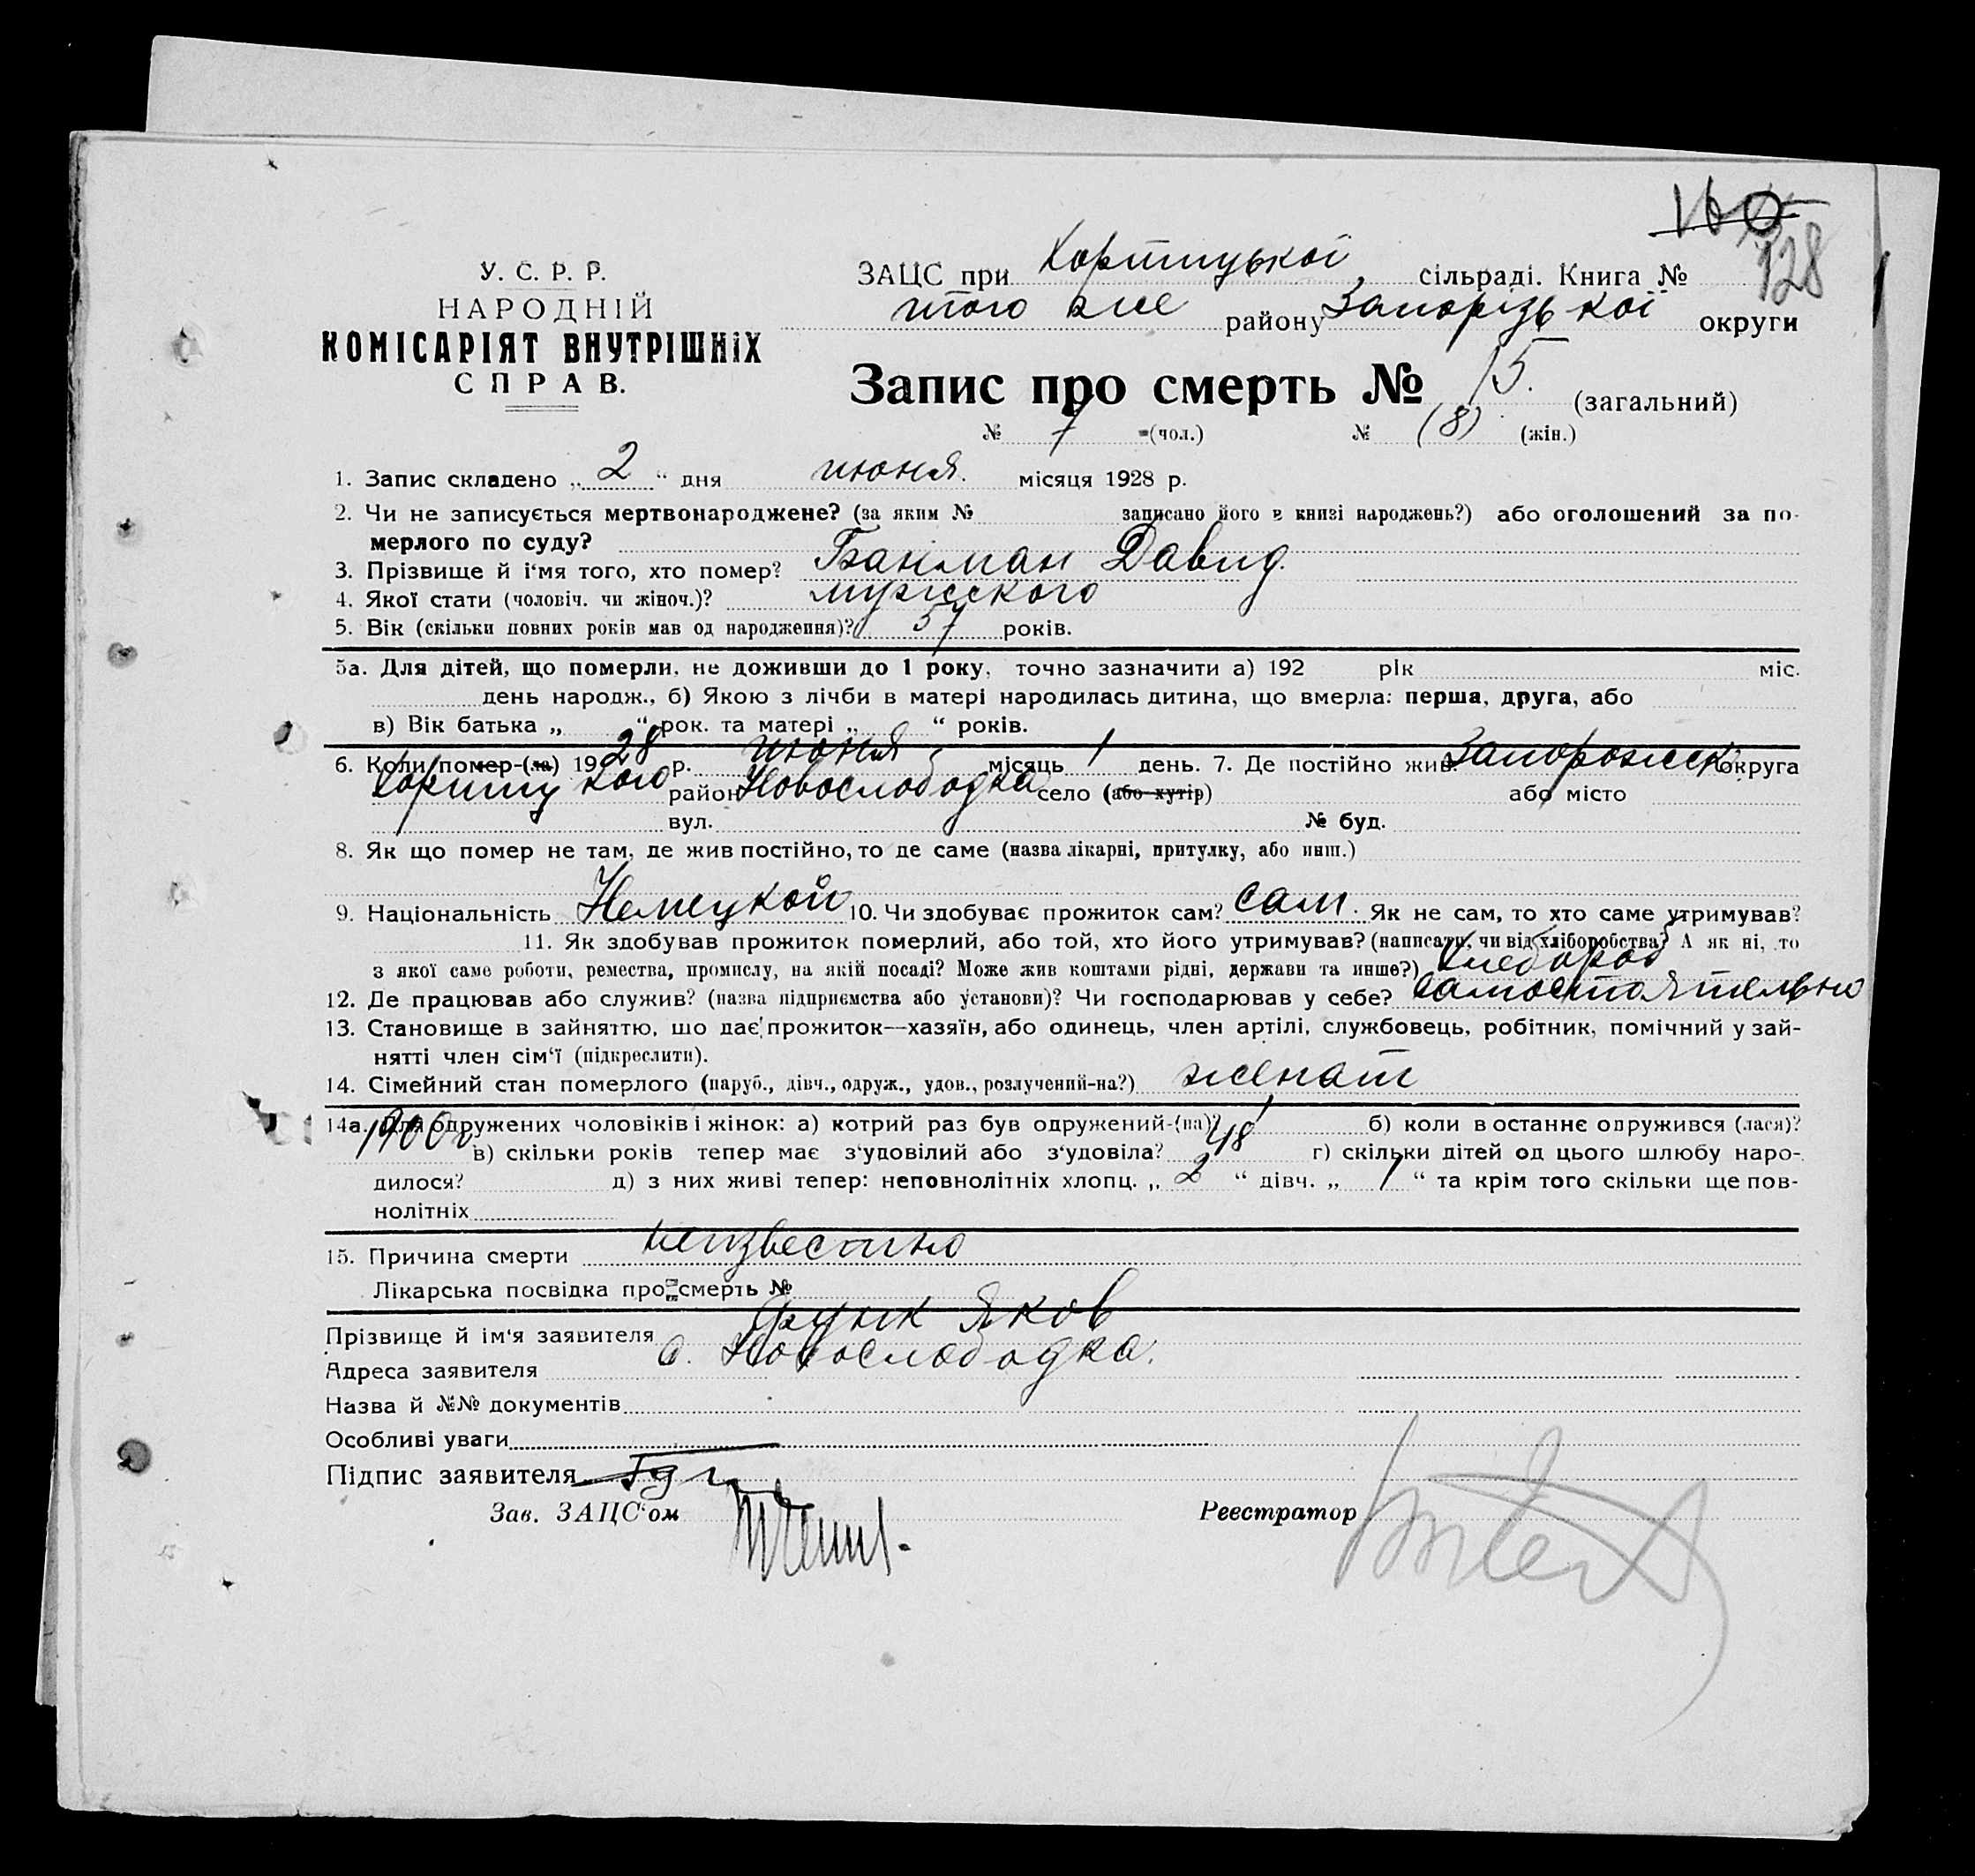 128
У. С. Р. Р.
НАРОДНІЙ
КОМІСАРІЯТ ВНУТРІШНІХ
СПРАВ.
ЗАЦС при Хортицької сільраді. Книга №
того же району Запорізької округи
Запис про смерть № 15. (загальний)
№ 7 (чол.) № (8) (жін.)
1. Запис складено „ 2 “ дня июня. місяця 1928 р.
2. Чи не записується мертвонароджене? (за яким № записано його в книзі народжень?) або оголошений за по-
мерлого по суду?
3. Прізвище й і‘мя того, хто помер? Банман Давид.
4. Якої стати (чоловіч. чи жіноч.)? мужского
5. Вік (скільки повних років мав од народження)? 57 років.
5а. Для дітей, що померли, не доживши до 1 року, точно зазначити а) 192 рік міс.
день народж., б) Якою з лічби в матері народилась дитина, що вмерла: перша, друга, або
в) Вік батька „ “ рок. та матері „ “ років.
6. Коли помер-(ла) 1928 р. июня місяць 1 день. 7. Де постійно жив. Запорожск. округа
Хортицкого район Новослободка село (або хутір) або місто
вул. № буд.
8. Як що помер не там, де жив постійно, то де саме (назва лікарні, притулку, або инш.)
9. Національність Немецкой 10. Чи здобуває прожиток сам? сам. Як не сам, то хто саме утримував?
11. Як здобував прожиток померлий, або той, хто його утримував? (написати, чи від хліборобства? А як ні, то
з якої саме роботи, ремества, промислу, на якій посаді? Може жив коштами рідні, держави та инше?) Хлебороб
12. Де працював або служив? (назва підприємства або установи)? Чи господарював у себе? самостоятельно
13. Становище в зайняттю, що дає прожиток—хазяїн, або одинець, член артілі, службовець, робітник, помічний у зай-
нятті член сім‘ї (підкреслити).
14. Сімейний стан померлого (паруб., дівч., одруж., удов., розлучений-на?) женат
14а. Для одружених чоловіків і жінок: а) котрий раз був одружений-(на)? 1 б) коли востаннє одружився (лася)?
1900г в) скільки років тепер має з‘удовілий або з‘удовіла? 48 г) скільки дітей од цього шлюбу наро-
дилося? д) з них живі тепер: неповнолітніх хлопц. „ 2 “ дівч. „ 1 “ та крім того скільки ще пов-
нолітніх
15. Причина смерти неизвестно
Лікарська посвідка про смерть №
Прізвище й ім‘я заявителя Яков
Адреса заявителя с. Новослободка.
Назва й №№ документів
Особливі уваги
Підпис заявителя
Зав. ЗАЦС‘ом Реестратор